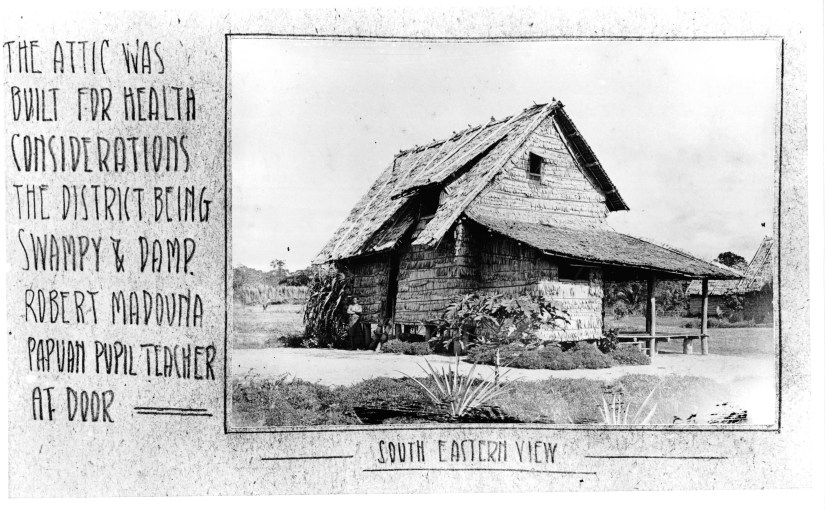 THE ATTIC WAS
BUILT FOR HEALTH
CONSIDERATIONS
THE DISTRICT BEING
SWAMPY & DAMP.
ROBERT MADOUNA
PAPUAN PUPIL TEACHER
AT DOOR
SOUTH EASTERN VIEW